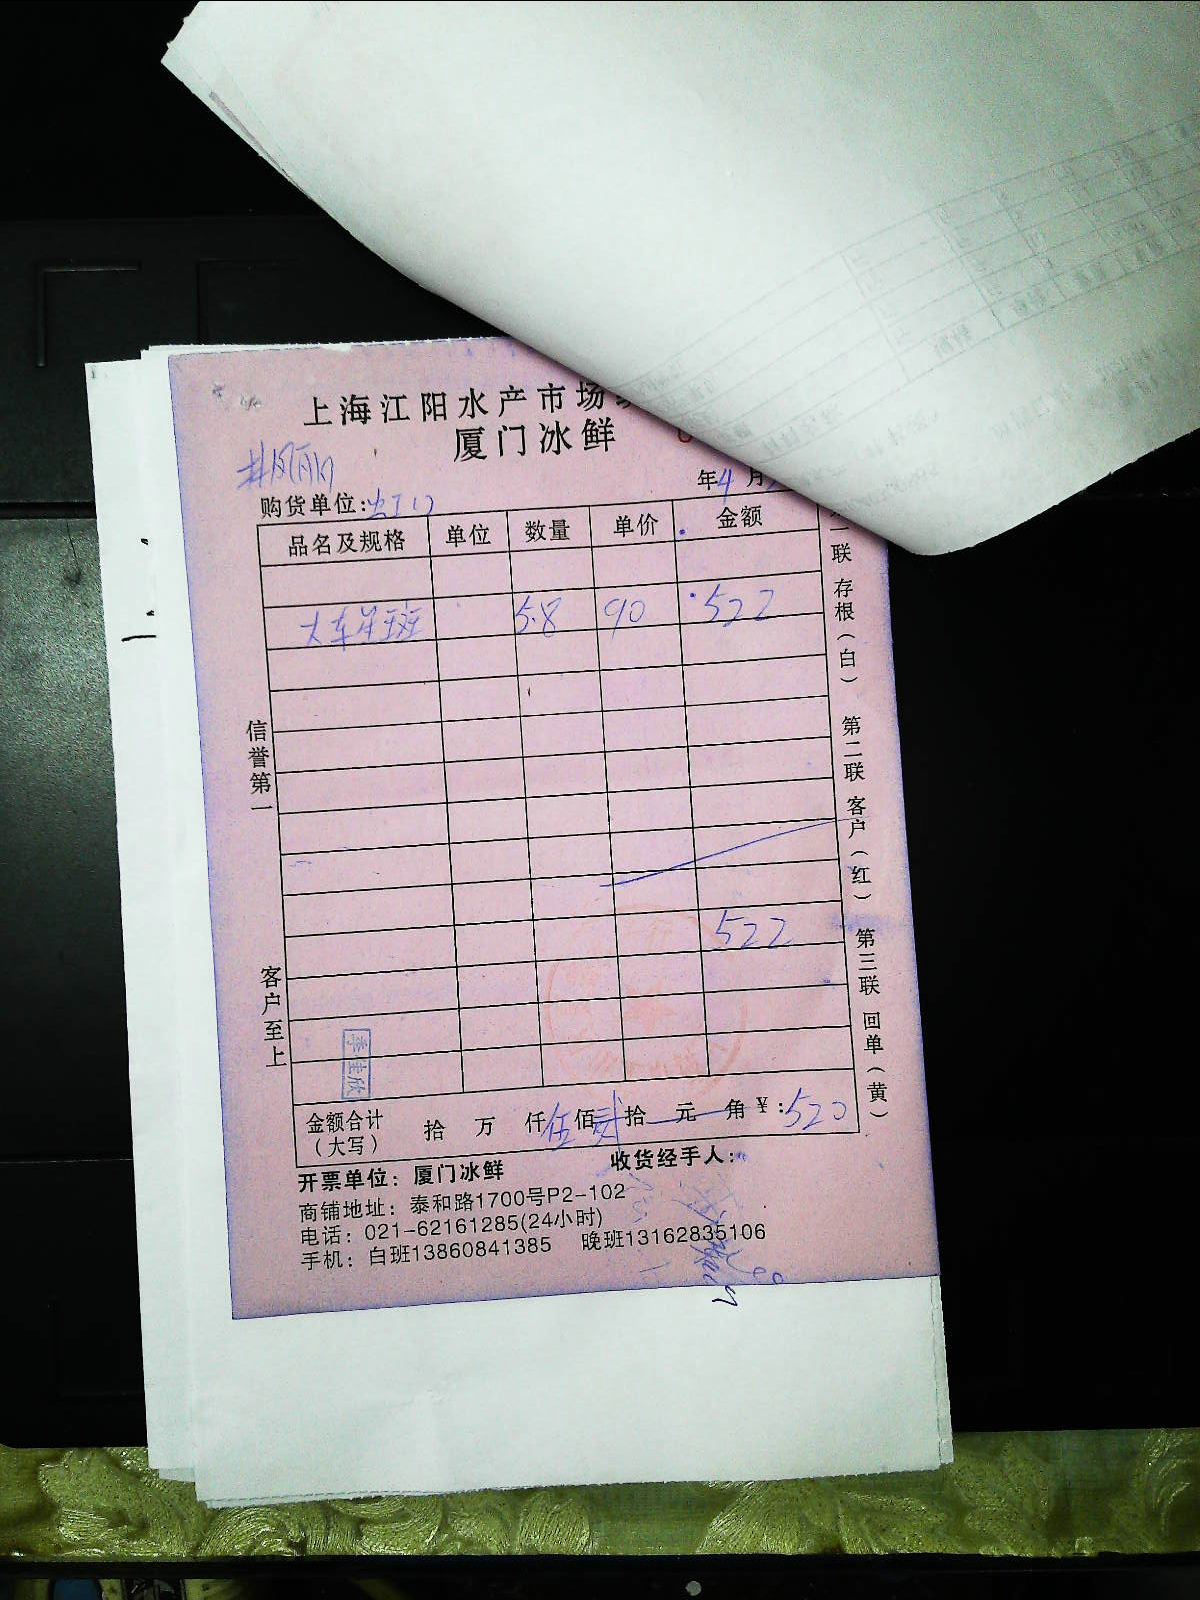 上海江阳水产市场
厦门冰鲜
年4月
购货单位:虹口
品名及规格 单位 数量 单价 金额
大车生斑 5.8 90 522
522
金额合计（大写） 拾 万 仟伍佰贰拾 元 角 ¥:520
开票单位：厦门冰鲜 收货经手人：
商铺地址：泰和路1700号P2-102
电话：021-62161285(24小时)
手机：白班13860841385 晚班13162835106
信誉第一 客户至上
联 存根（白） 第二联 客户（红） 第三联 回单（黄）
李佳欣